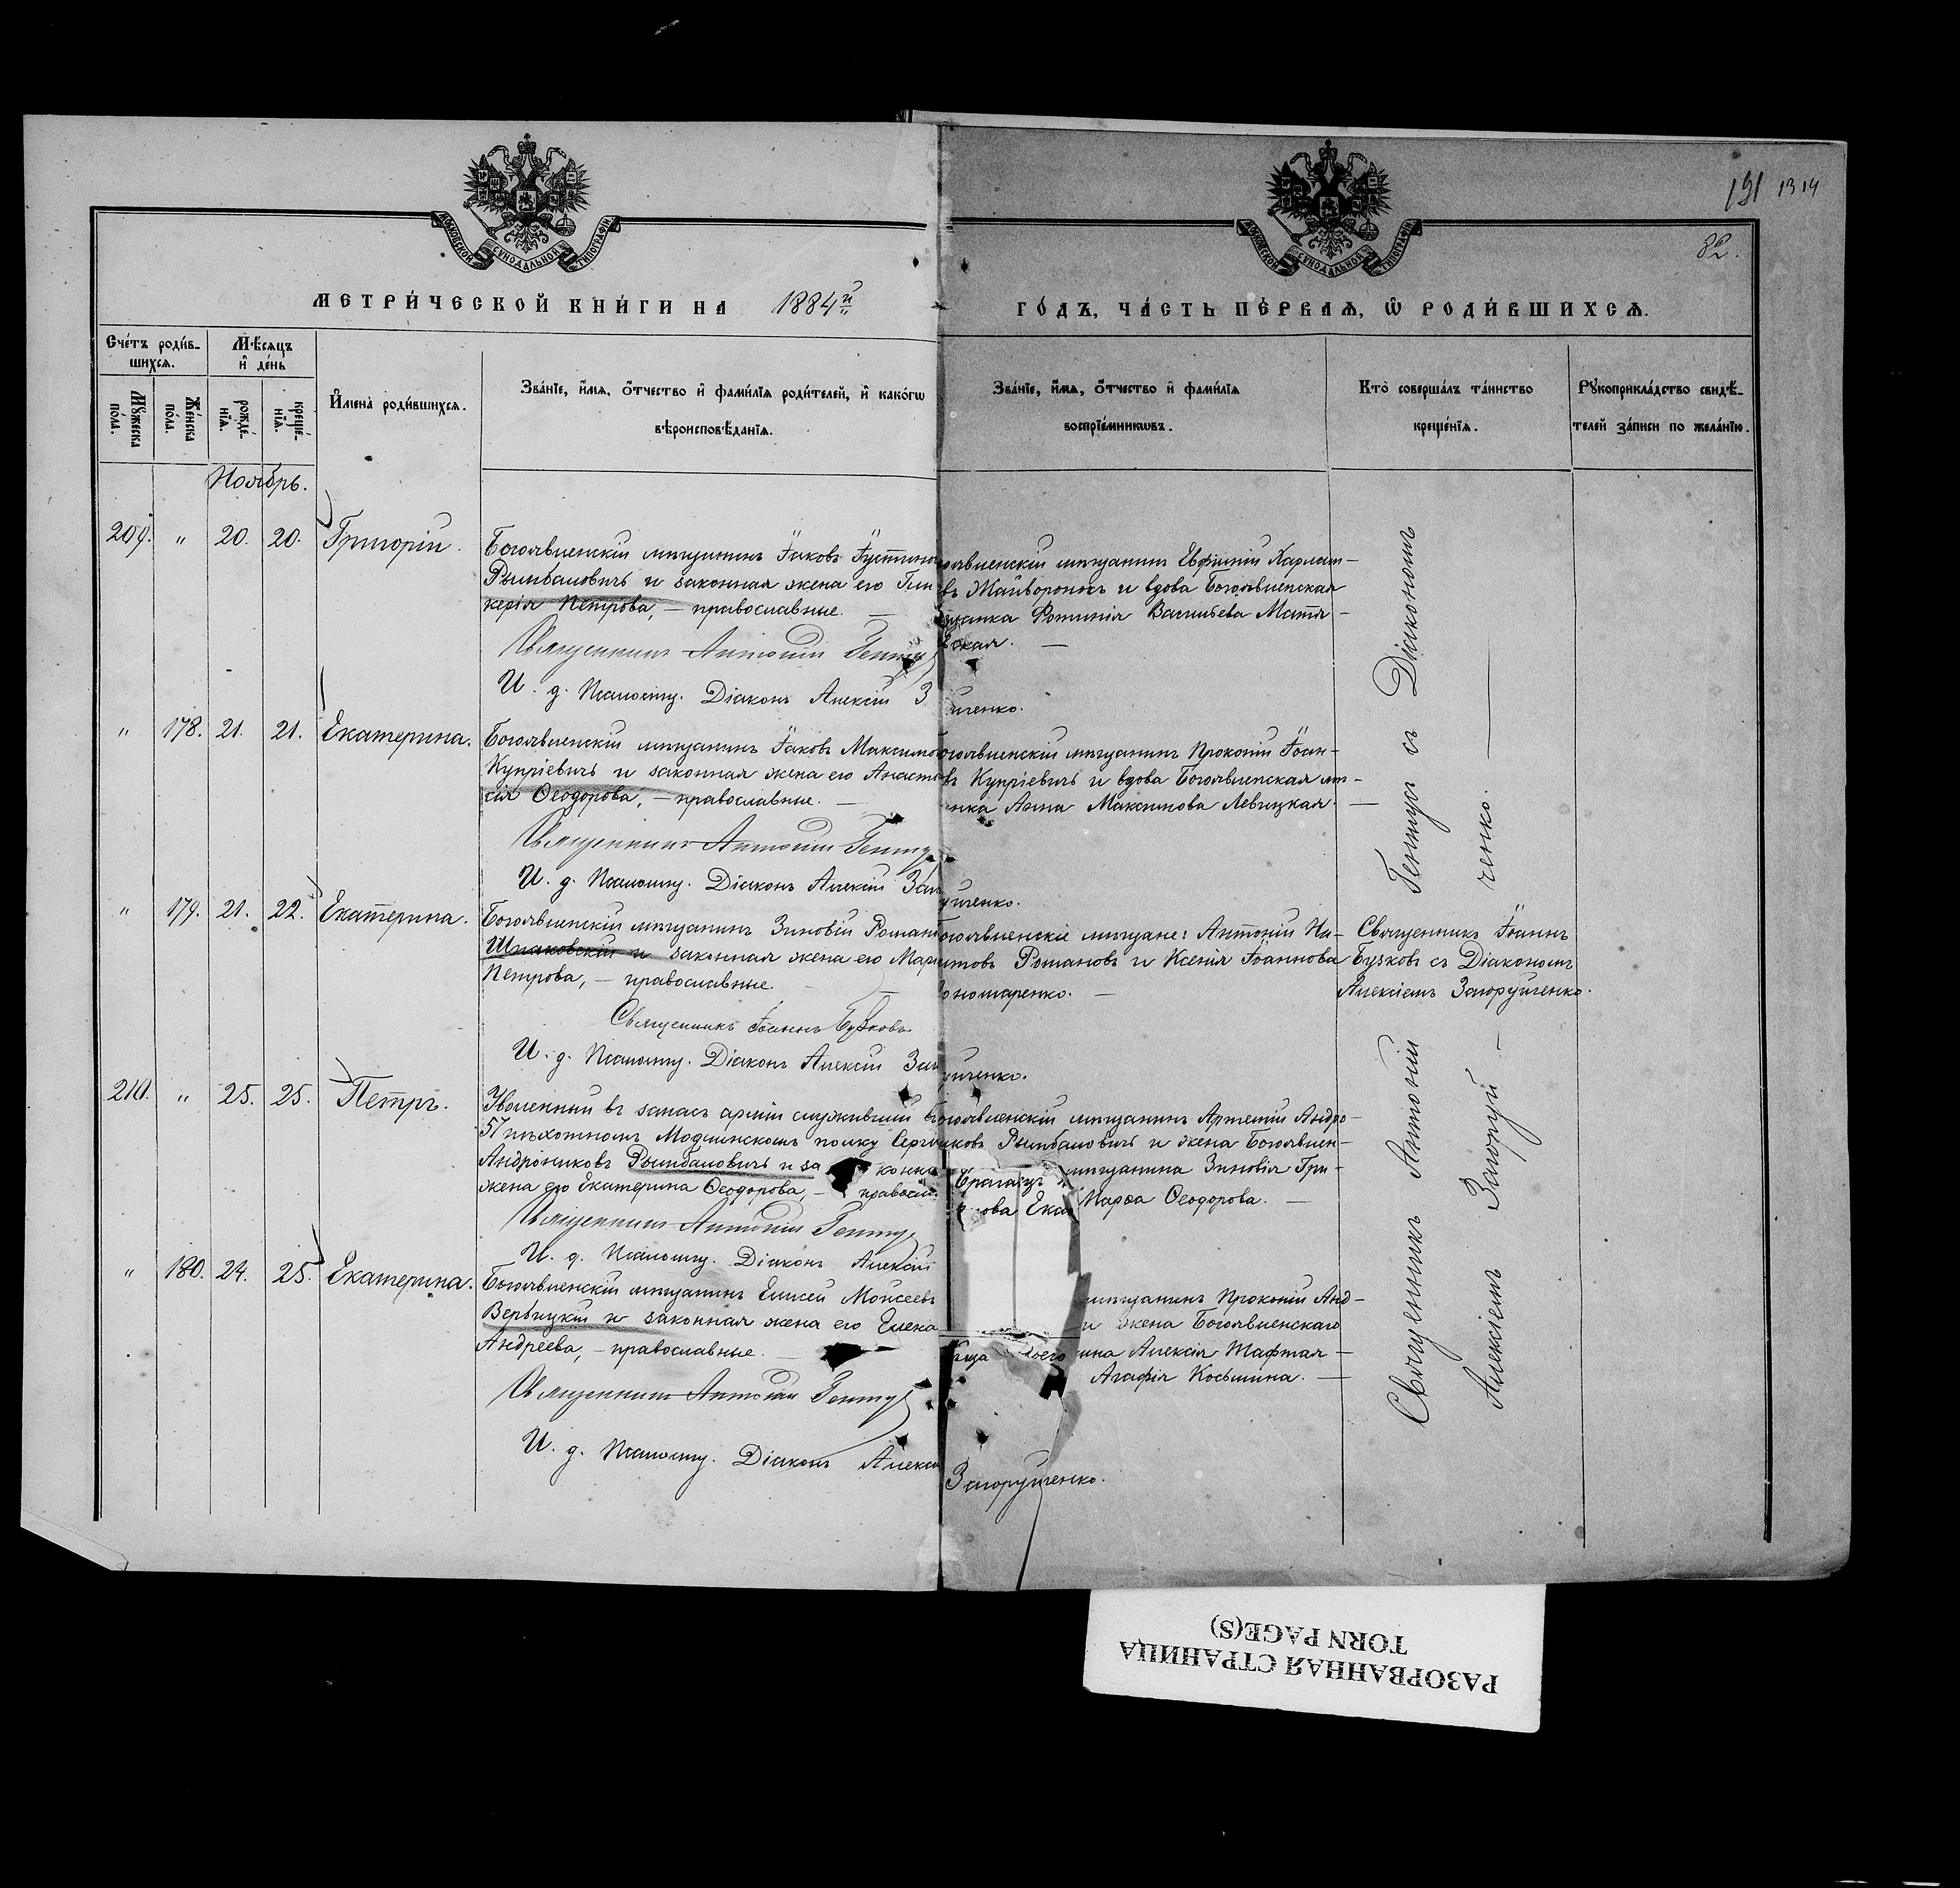 МОСКОВСКОЙ СУНОДАЛЬНОЙ ТИПОГРАФІИ
МОСКОВСКОЙ СУНОДАЛЬНОЙ ТИПОГРАФІИ
191 1314
82.
МЕТРИ́ЧЕСКОЙ КНИ́ГИ НА 1884й
ГО́ДЪ, ЧА́СТЬ ПЕ́РВАѦ, Ѡ҆ РОДИ́ВШИХСѦ.
Сче́тъ роди́в-
шихсѧ.
Мѣ́сѧцъ
и҆ де́нь
Мꙋ́жеска
по́ла.
Же́нска
по́ла.
рожде́-
нїѧ.
креще́-
нїѧ.
И҆мена̀ роди́вшихсѧ.
Зва́нїе, и҆́мѧ, ѻ҆́тчество и҆ фами́лїѧ роди́телей, и҆ како́гѡ
вѣроисповѣ́данїѧ.
Зва́нїе, и҆́мѧ, ѻ҆́тчество и҆ фами́лїѧ
воспрїе́мникѡвъ.
Кто̀ соверша́лъ та́инство
креще́нїѧ.
Рꙋкоприкла́дство свидѣ́-
телей за́писи по жела́нїю.
Ноябрь.
209. " 20. 20. Григорій.
Богоявленскій мѣщанинъ Іаковъ Іустинов
Рымбаловичъ и законная жена его Гли
керія Петрова, — православные. —
Священникъ Антоній Гентуз
И. д. Псаломщ. Діаконъ Алексій З
оявленскій мѣщанинъ Евфимій Харлам-
въ Жайворонокъ и вдова Богоявленская
щанка Фотинія Васильева Матя-
ская. —
ченко.
" 178. 21. 21. Екатерина.
Богоявленскій мѣщанинъ Іаковъ Максимо
Купріевичъ и законная жена его Анаста
сія Ѳеодорова, — православные. —
Священникъ Антоній Гентуз
И. д. Псаломщ. Діаконъ Алексій Заг
огоявленскій мѣщанинъ Прокопій Іоан-
въ Купріевичъ и вдова Богоявленская мѣ-
анка Анна Максимова Левицкая. —
ченко.
" 179. 21. 22. Екатерина.
Богоявленскій мѣщанинъ Зиновій Роман
Шпаковскій и законная жена его Мар
Петрова, — православные. —
Священникъ Іоаннъ Бузковъ
И. д. Псаломщ. Діаконъ Алексій Заг
огоявленскіе мѣщане: Антоній Ни-
итовъ Романовъ и Ксенія Іоаннова
ономаренко. —
ченко.
Священникъ Іоаннъ
Бузковъ съ Діакономъ
Алексіемъ Загоруйченко.
210. " 25. 25. Петръ.
Уволенный въ запасъ арміи служившій въ
57 пѣхотномъ Модлинскомъ полку Серг
Андрониковъ Рымбаловичъ и за конна
жена его Екатерина Ѳеодорова, — правосл
Священникъ Антоній Гентуз
И. д. Псаломщ. Діаконъ Алексій
огоявленскій мѣщанинъ Артемій Андро-
никовъ Рымбаловичъ и жена Богоявлен-
мѣщанина Зиновія Гри-
ова Ека Марѳа Ѳеодорова. —
" 180. 24. 25. Екатерина.
Богоявленскій мѣщанинъ Елисей Моисеевъ
Вербицкій и законная жена его Елена
Андреева, — православные. —
Священникъ Антоній Гентуз
И. д. Псаломщ. Діаконъ Алекс
мѣщанинъ Прокопій Анд-
и жена Богоявленскаго
ина Алексія Шафтал-
Агафія Косьмина. —
Загоруйченко.
Священникъ Антоній Гентуз съ Діакономъ
Алексіемъ Загоруй — ченко. —
РАЗОРВАННАЯ СТРАНИЦА
TORN PAGE(S)